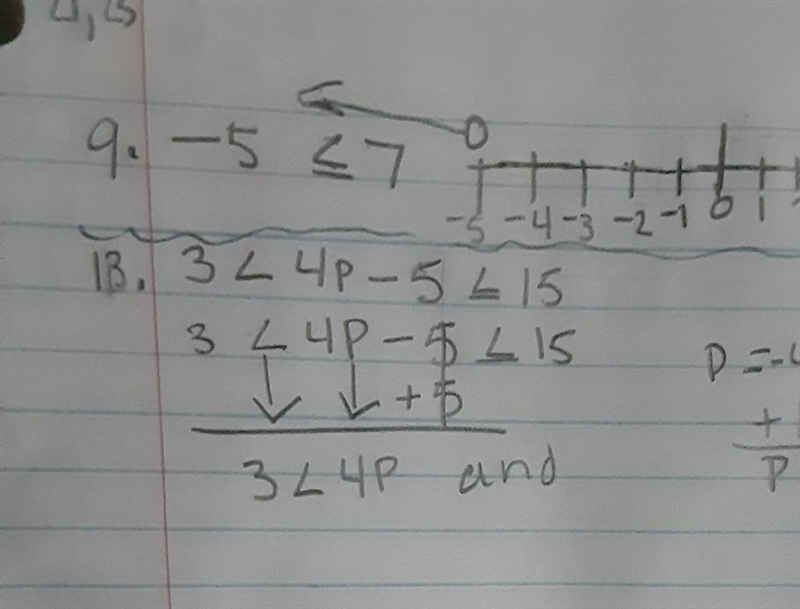 9. -5 ≤ 7
-5 -4 -3 -2 -1 0 1
13. 3 < 4p - 5 ≤ 15
3 < 4p - 5 ≤ 15
+ 5
3 < 4p and
p = -
+
p